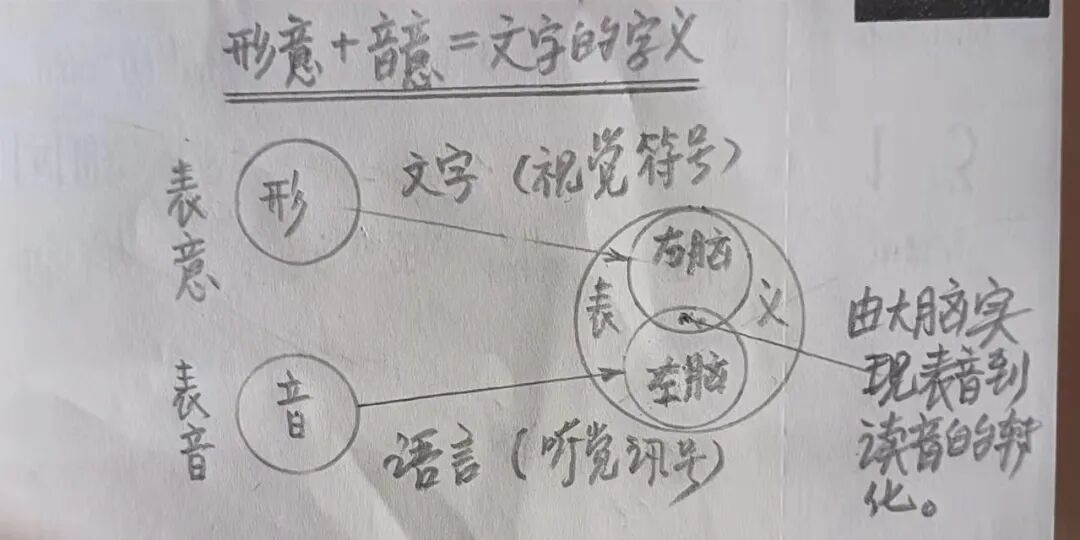 形意+音意=文字的字义
表意
形
文字(视觉符号)
右脑
表 义
左脑
由大脑实
现表音到
读音的转
化。
表音
音
语言(听觉讯号)